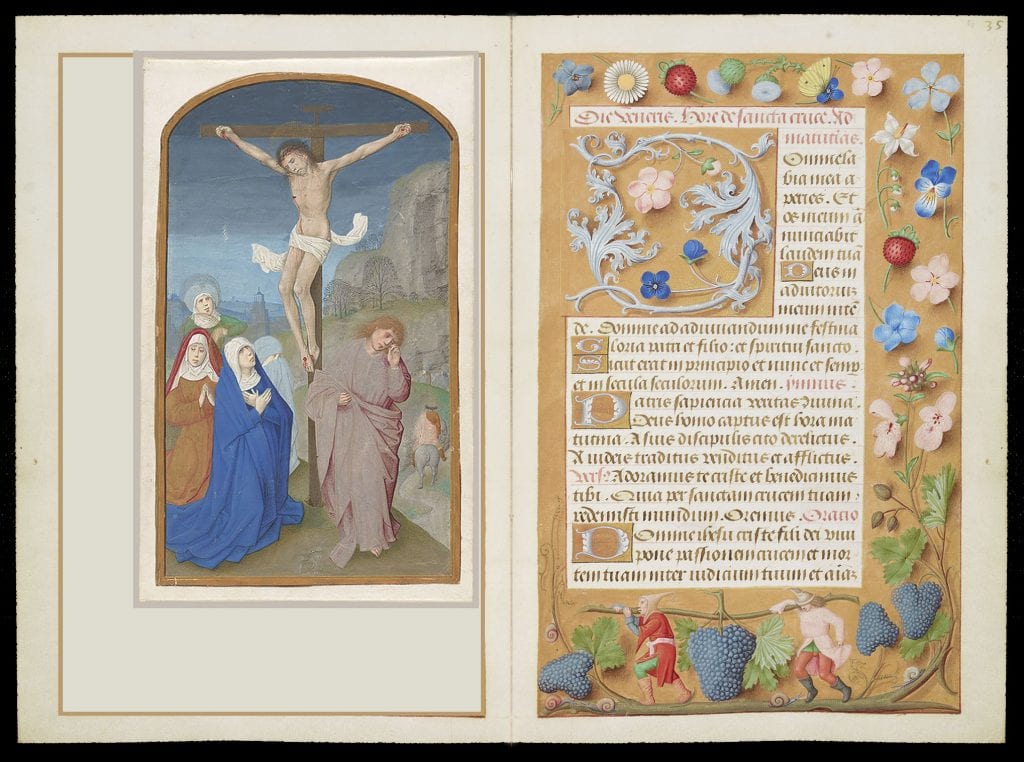 35
Die Veneris. Hore de sancta cruce. Ad
matutinas.
Domine la
bia mea a
peries. Et
os meum ã
nunciabit
laudem tuã
Deus in
adiutoriũ
meum intẽ
de. Domine ad adiuuandum me festina
Gloria patri et filio: et spiritui sancto.
Sicut erat in principio et nunc et semp
et in secula seculorum. Amen. ymnus
Patris sapiencia veritas diuina.
Deus homo captus est hora ma
tutina. A suis discipulis cito derelictus.
A iudeis traditus venditus et afflictus.
Vers: Adoramus te criste et benedicimus
tibi. Quia per sanctam crucem tuam
redemisti mundum. Oremus. Oratio
Domine ihesu criste fili dei viui
pone passionem crucem et mor
tem tuam inter iudicium tuum et aĩaz